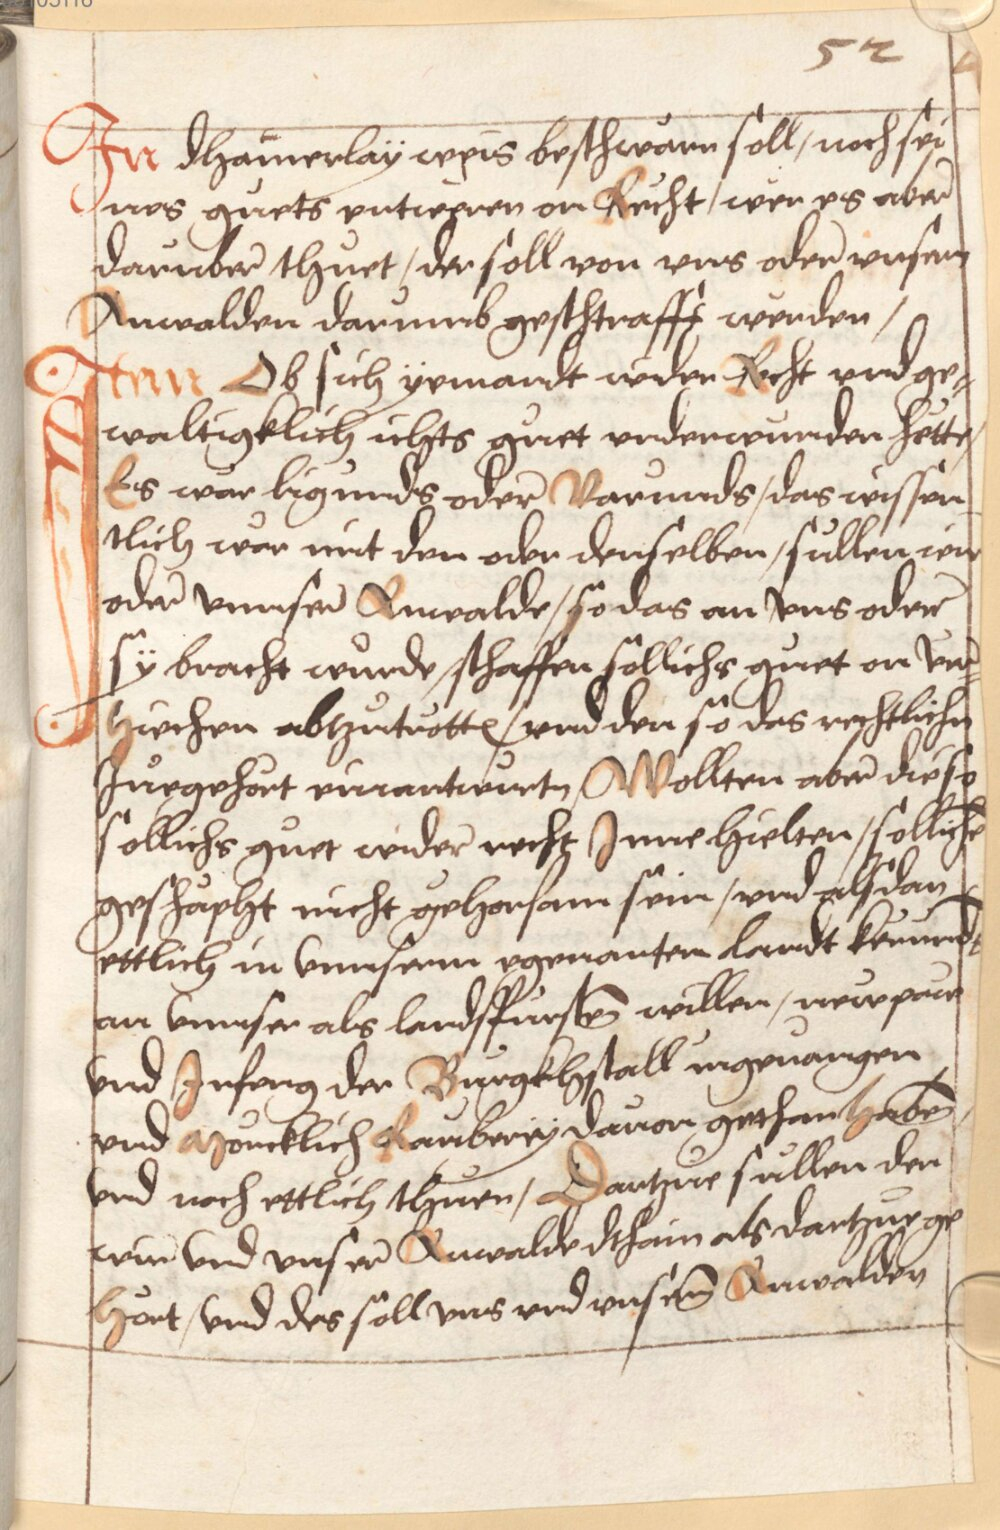 52
In dhainerlay weis beschwarn soll / noch sei
nes guets entweren on Recht / wer es aber
daruber thuet / der soll von vns oder vnsern
Anwalden darumb geschtrafft werden /
Item Ob sich yemandt wider Recht vnd ge=
waltigklich ichts guet vnderwunden hette /
Es war ligunds oder Varunds / das wissen
tlich war mit den oder denselben / sullen wir
oder vnnser Anwalde / so das an vns oder
sy bracht wurde / schaffen sollichs guet on ver=
ziechen abtzutrotten / vnd den so das rechtlichn
Zuegehort einantwurtn / Wollten aber die so
sollichs guet wider recht Inne hielten / sollichē
geschäpht nicht gehorsam sein / vnd alsdan
ettlich in vnnserm egenanten Landt kerundt
an vnnser als landsffursten willen / new paw
vnd Infeng der Burgkhstall ingenangen
vnd Mercklich Rauberey dauon gethan haben /
vnd noch ettlich thuen / Dartzue sullen den
wir vnd vnser Anwalde thain als dartzue ge
hort / vnd des soll vns vnd vnsern Anwalden